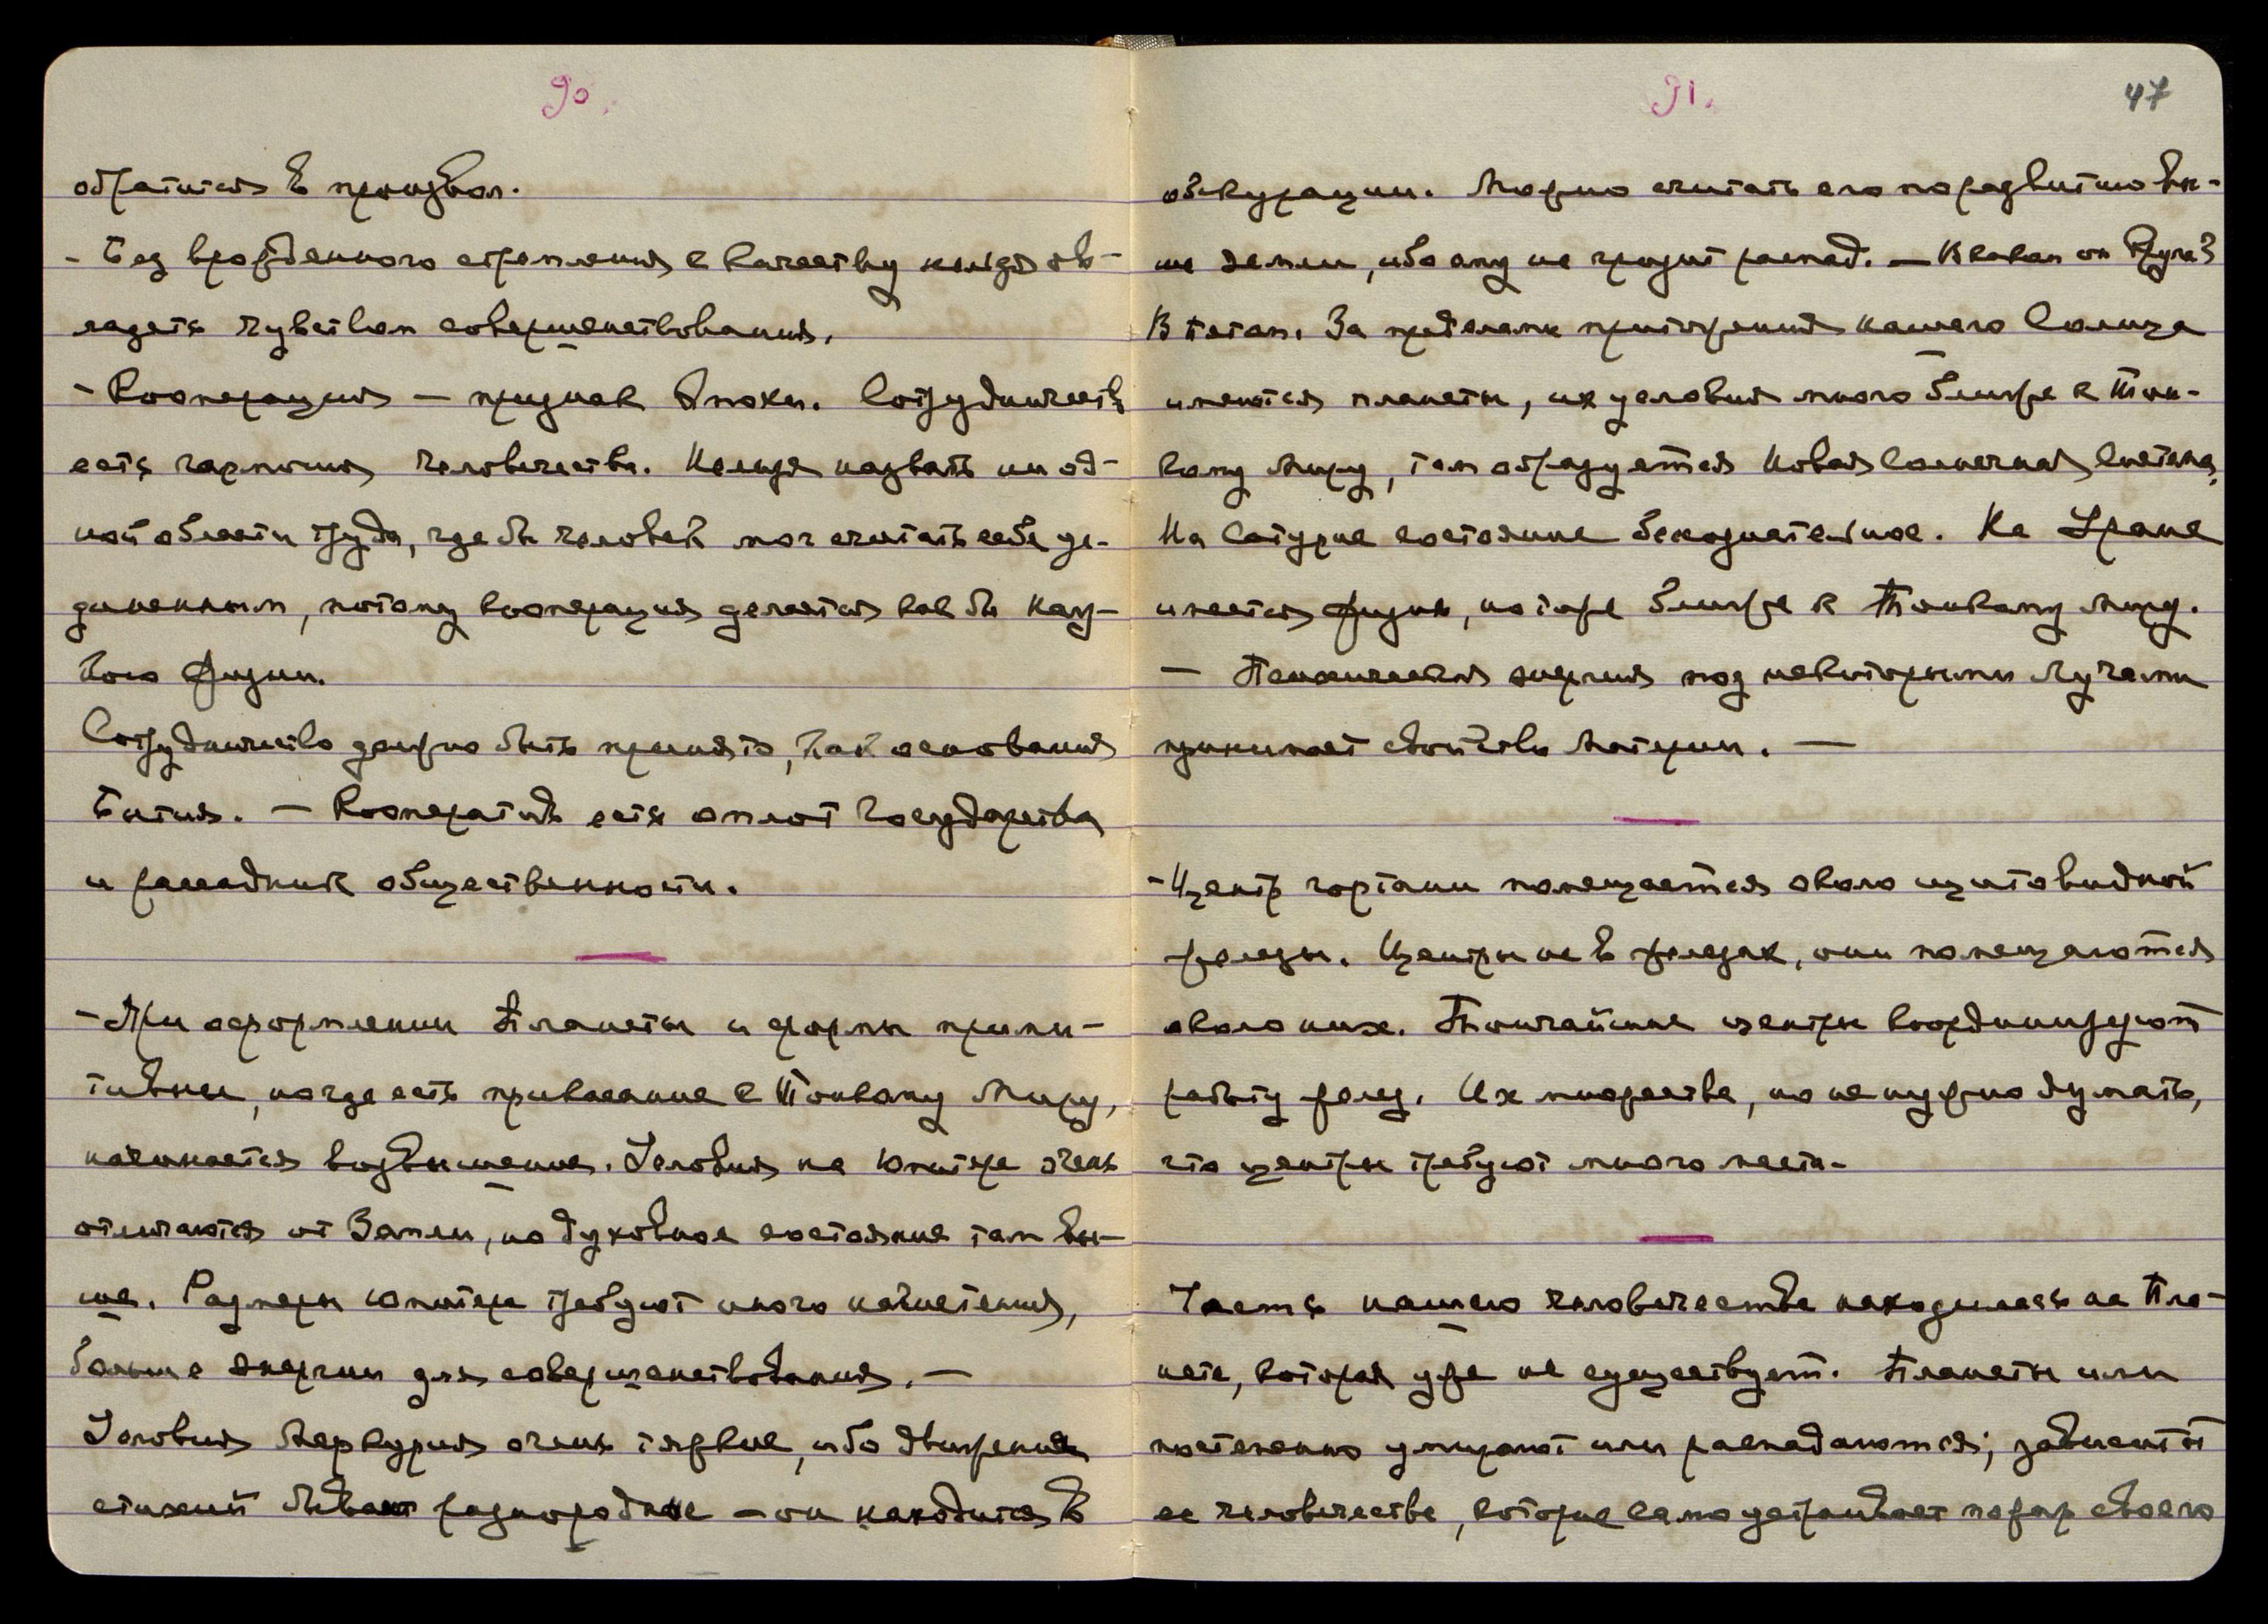 90.
обратится в произвол.
- Без врожденного стремления к качеству нельзя ов-
ладеть чувством совершенствования.
- Кооперация — признак Эпохи. Сотрудничеств
есть гармония человечества. Нельзя назвать ни од-
ной области труда, где бы человек мог считать себя уе-
диненным, потому кооперация делается как бы Нау-
кою жизни.
Сотрудничество должно быть принято, как основание
Бытия. — Кооператив есть оплот Государства
и рассадник общественности.
- При оформлении Планеты и формы прими-
тивны, но где есть прикасание к Тонкому Миру,
начинается возвышение. Условия на Юпитере очень
отличаются от Земли, но духовное состояние там вы-
ше. Размеры Юпитера требуют иного нагнетения,
больше энергии для совершенствования. —
Условия Меркурия очень тяжкие, ибо движение
стихий бывает разнородное - он находится в
91.
47
обскурации. Можно считать его по развитию вы-
ше земли, ибо ему не грозит распад. — В каком он Круге?
В пятом. За пределами притяжения нашего Солнца
имеются планеты, их условия много ближе к Тон-
кому Миру, там образуется Новая Солнечная Система.
На Сатурне состояние бессознательное. На Уране
имеется жизнь, но тоже ближе к Тонкому Миру.
— Психическая энергия под некоторыми Лучами
принимает свойства Материи. —
- Центр гортани помещается около щитовидной
железы. Центры не в железах, они помещаются
около них. Тончайшие центры координируют
работу желез. Их множества, но не нужно думать,
что центры требуют много места.
Часть нашего человечества находилась на Пла-
нете, которая уже не существует. Планеты или
постепенно умирают или распадаются; зависит от
ее человечества, которое само устраивает пожар своего